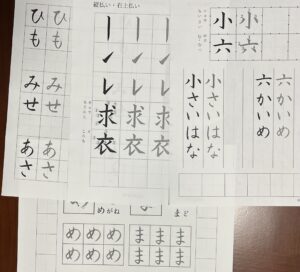 ひも ひも
みせ みせ
あさ あさ
縦払い・右上払い
求 求 求
衣 衣 衣
小 小
六 六
小さいはな 小さいはな
六かいめ 六かいめ
めがね
まど
め め め ま ま ま
め め め ま ま ま